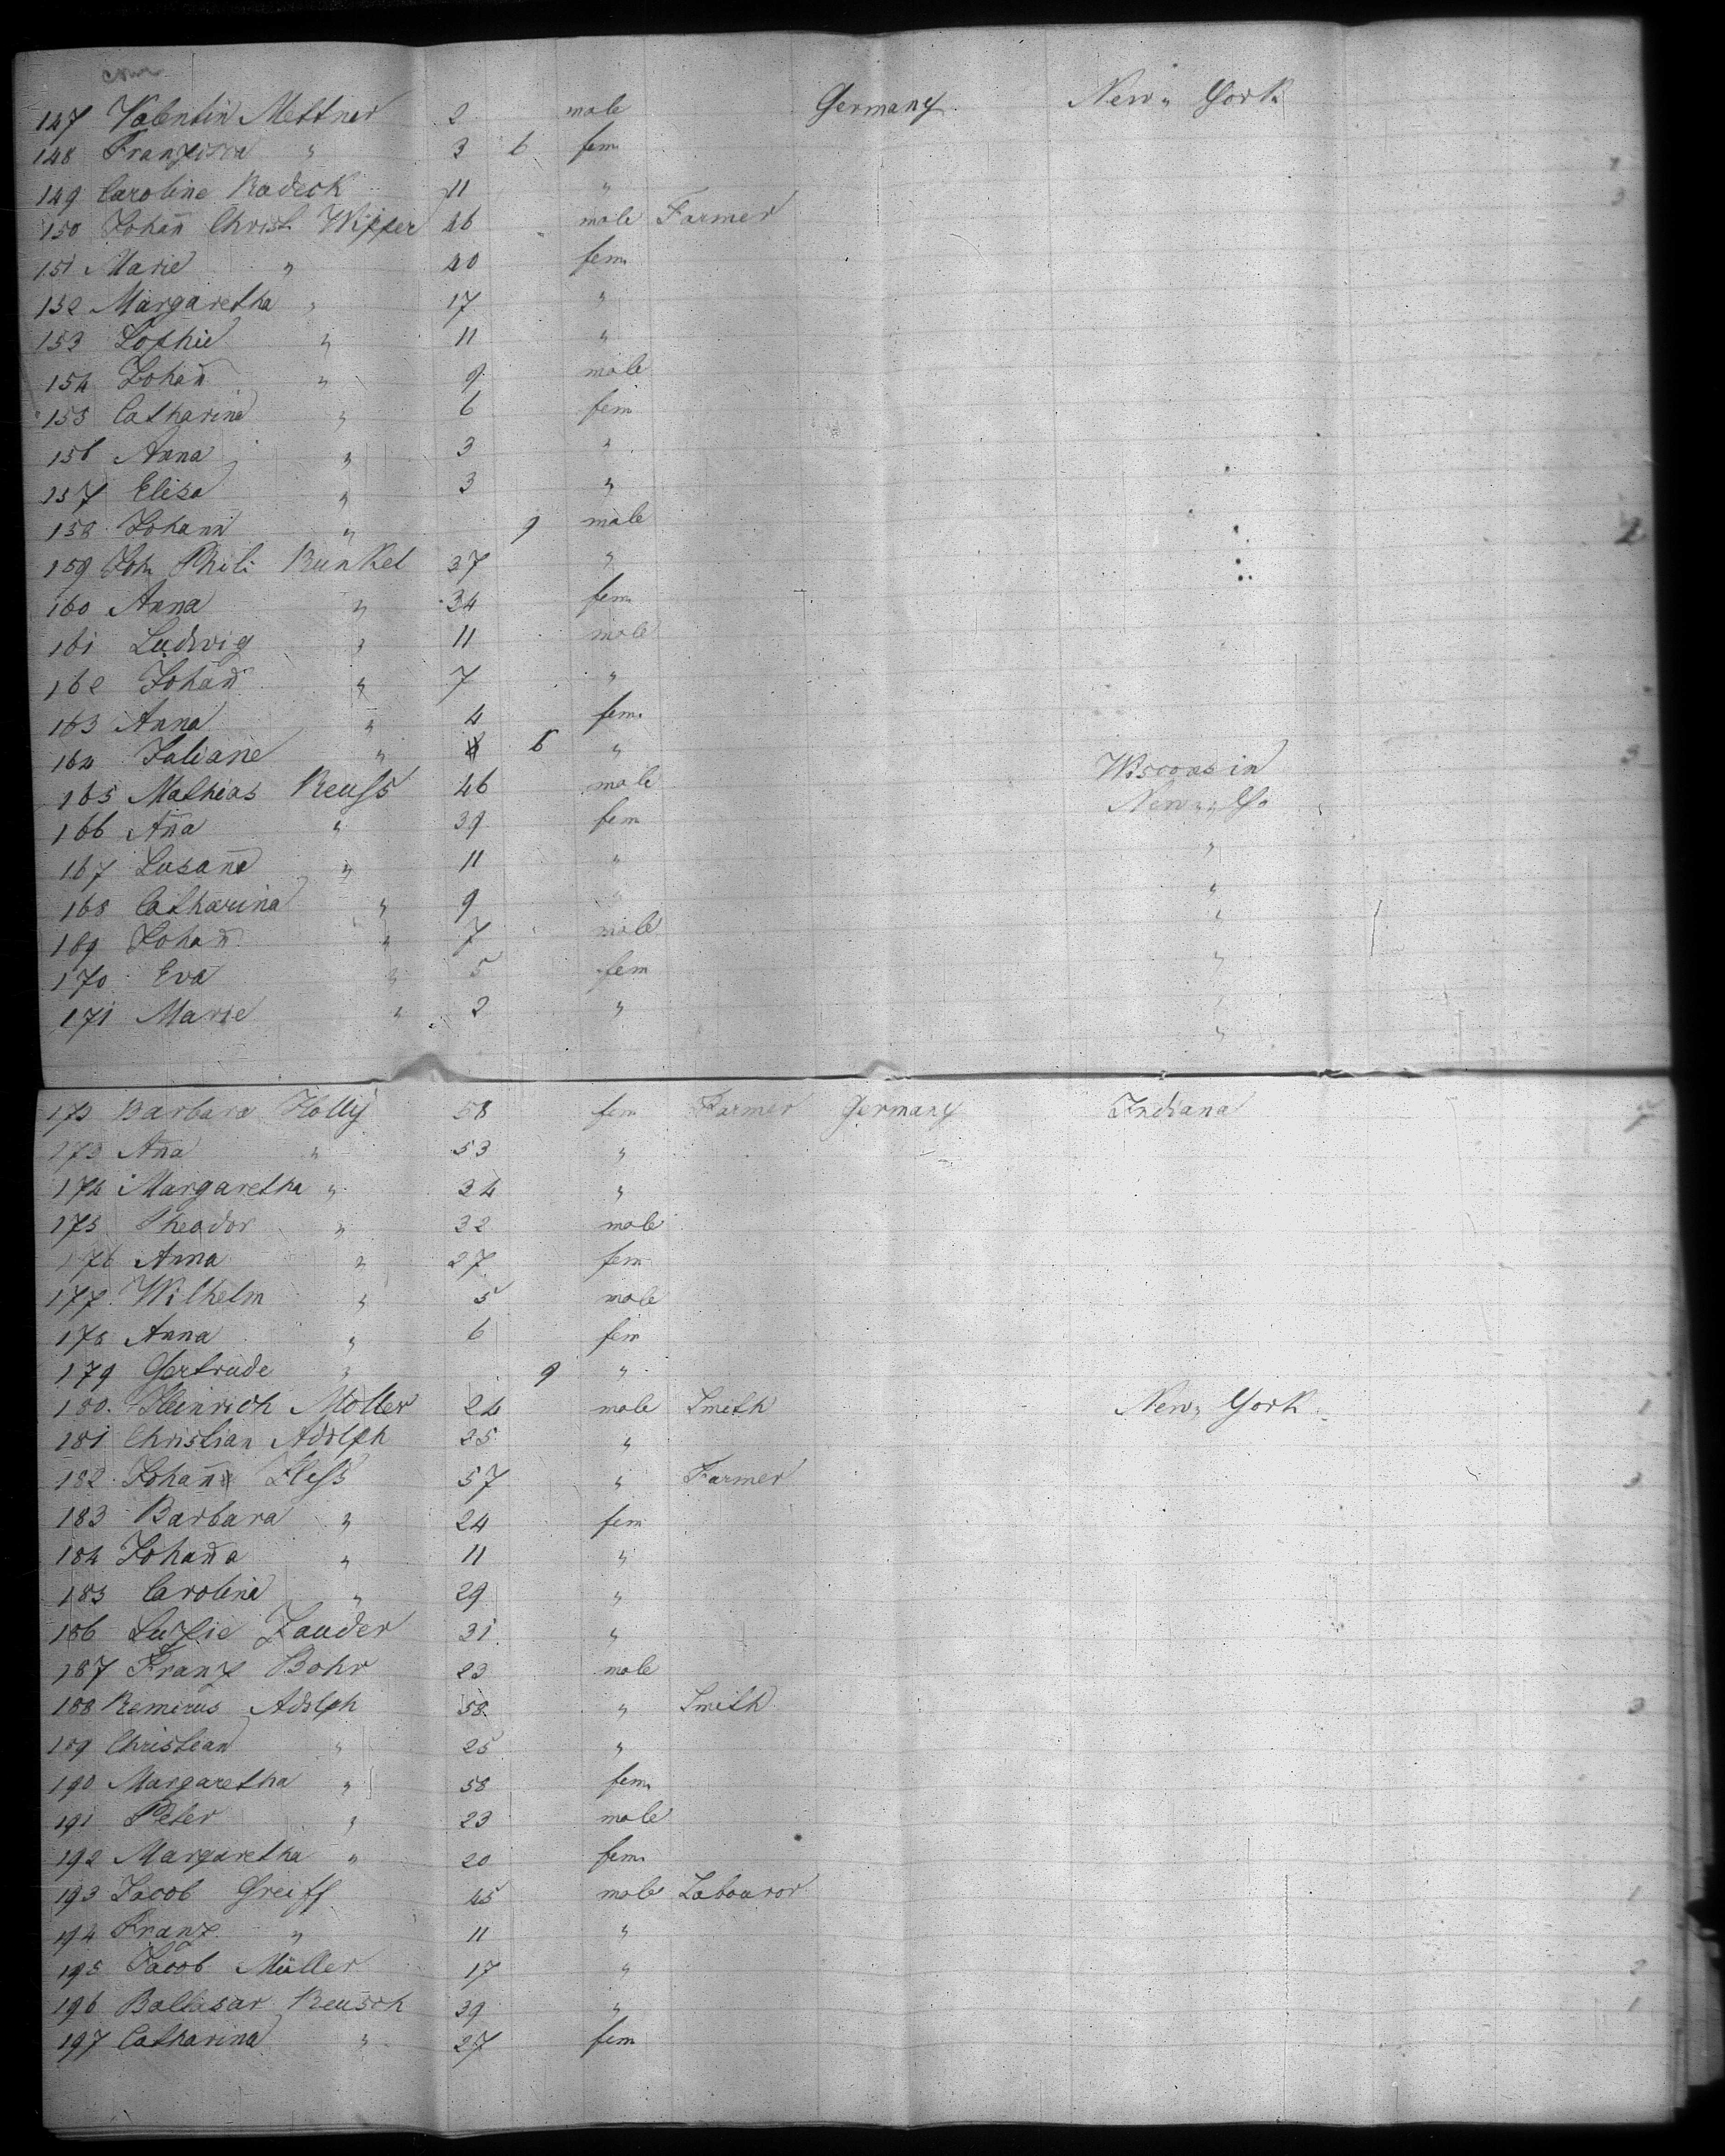 147 Valentin Mettner 2 male Germany New " York
148 Franziska " 3 6 fem
149 Caroline Radeck 11 "
150 Johan̄ Christ Wipper 46 male Farmer
151 Marie " 40 fem
152 Margaretha " 17 "
153 Sophie " 11 "
154 Johan̄ " 9 male
155 Catharina " 6 fem
156 Anna " 3 "
157 Elisa " 3 "
158 Johann " 9 male
159 Joh Phili Runkel 37 "
160 Anna " 34 fem
161 Ludwig " 11 male
162 Johan̄ " 7 "
163 Anna " 4 fem
164 Juliane " 6 "
165 Mathias Reuss 46 male Wisconsin
166 An̄a " 39 fem New " Yo
167 Susana " 11 " "
168 Catharina " 9 " "
169 Johan̄ " 7 male "
170 Eva " 5 fem "
171 Marie " 2 " "
172 Barbara Holly 58 fem Farmer Germany Indiana
173 An̄a " 53 "
174 Margaretha " 34 "
175 Theodor " 32 male
176 Anna " 27 fem
177 Wilhelm " 5 male
178 Anna " 6 fem
179 Gertrude " 9 "
180 Heinrich Moller 24 male Smith New " York
181 Christian Adolph 25 "
182 Johan̄ Fless 57 " Farmer
183 Barbara " 24 fem
184 Johan̄a " 11 "
185 Caroline " 29 "
186 Luzie Zauder 31 "
187 Franz Bohr 23 male
188 Remerus Adolph 58 " Smith
189 Christean " 25 "
190 Margaretha " 58 fem
191 Peter " 23 male
192 Margaretha " 20 fem
193 Jacob Greiff 45 male Labouror
194 Franz " 11 "
195 Jacob Müller 17 "
196 Baltasar Reusch 39 "
197 Catharina " 27 fem